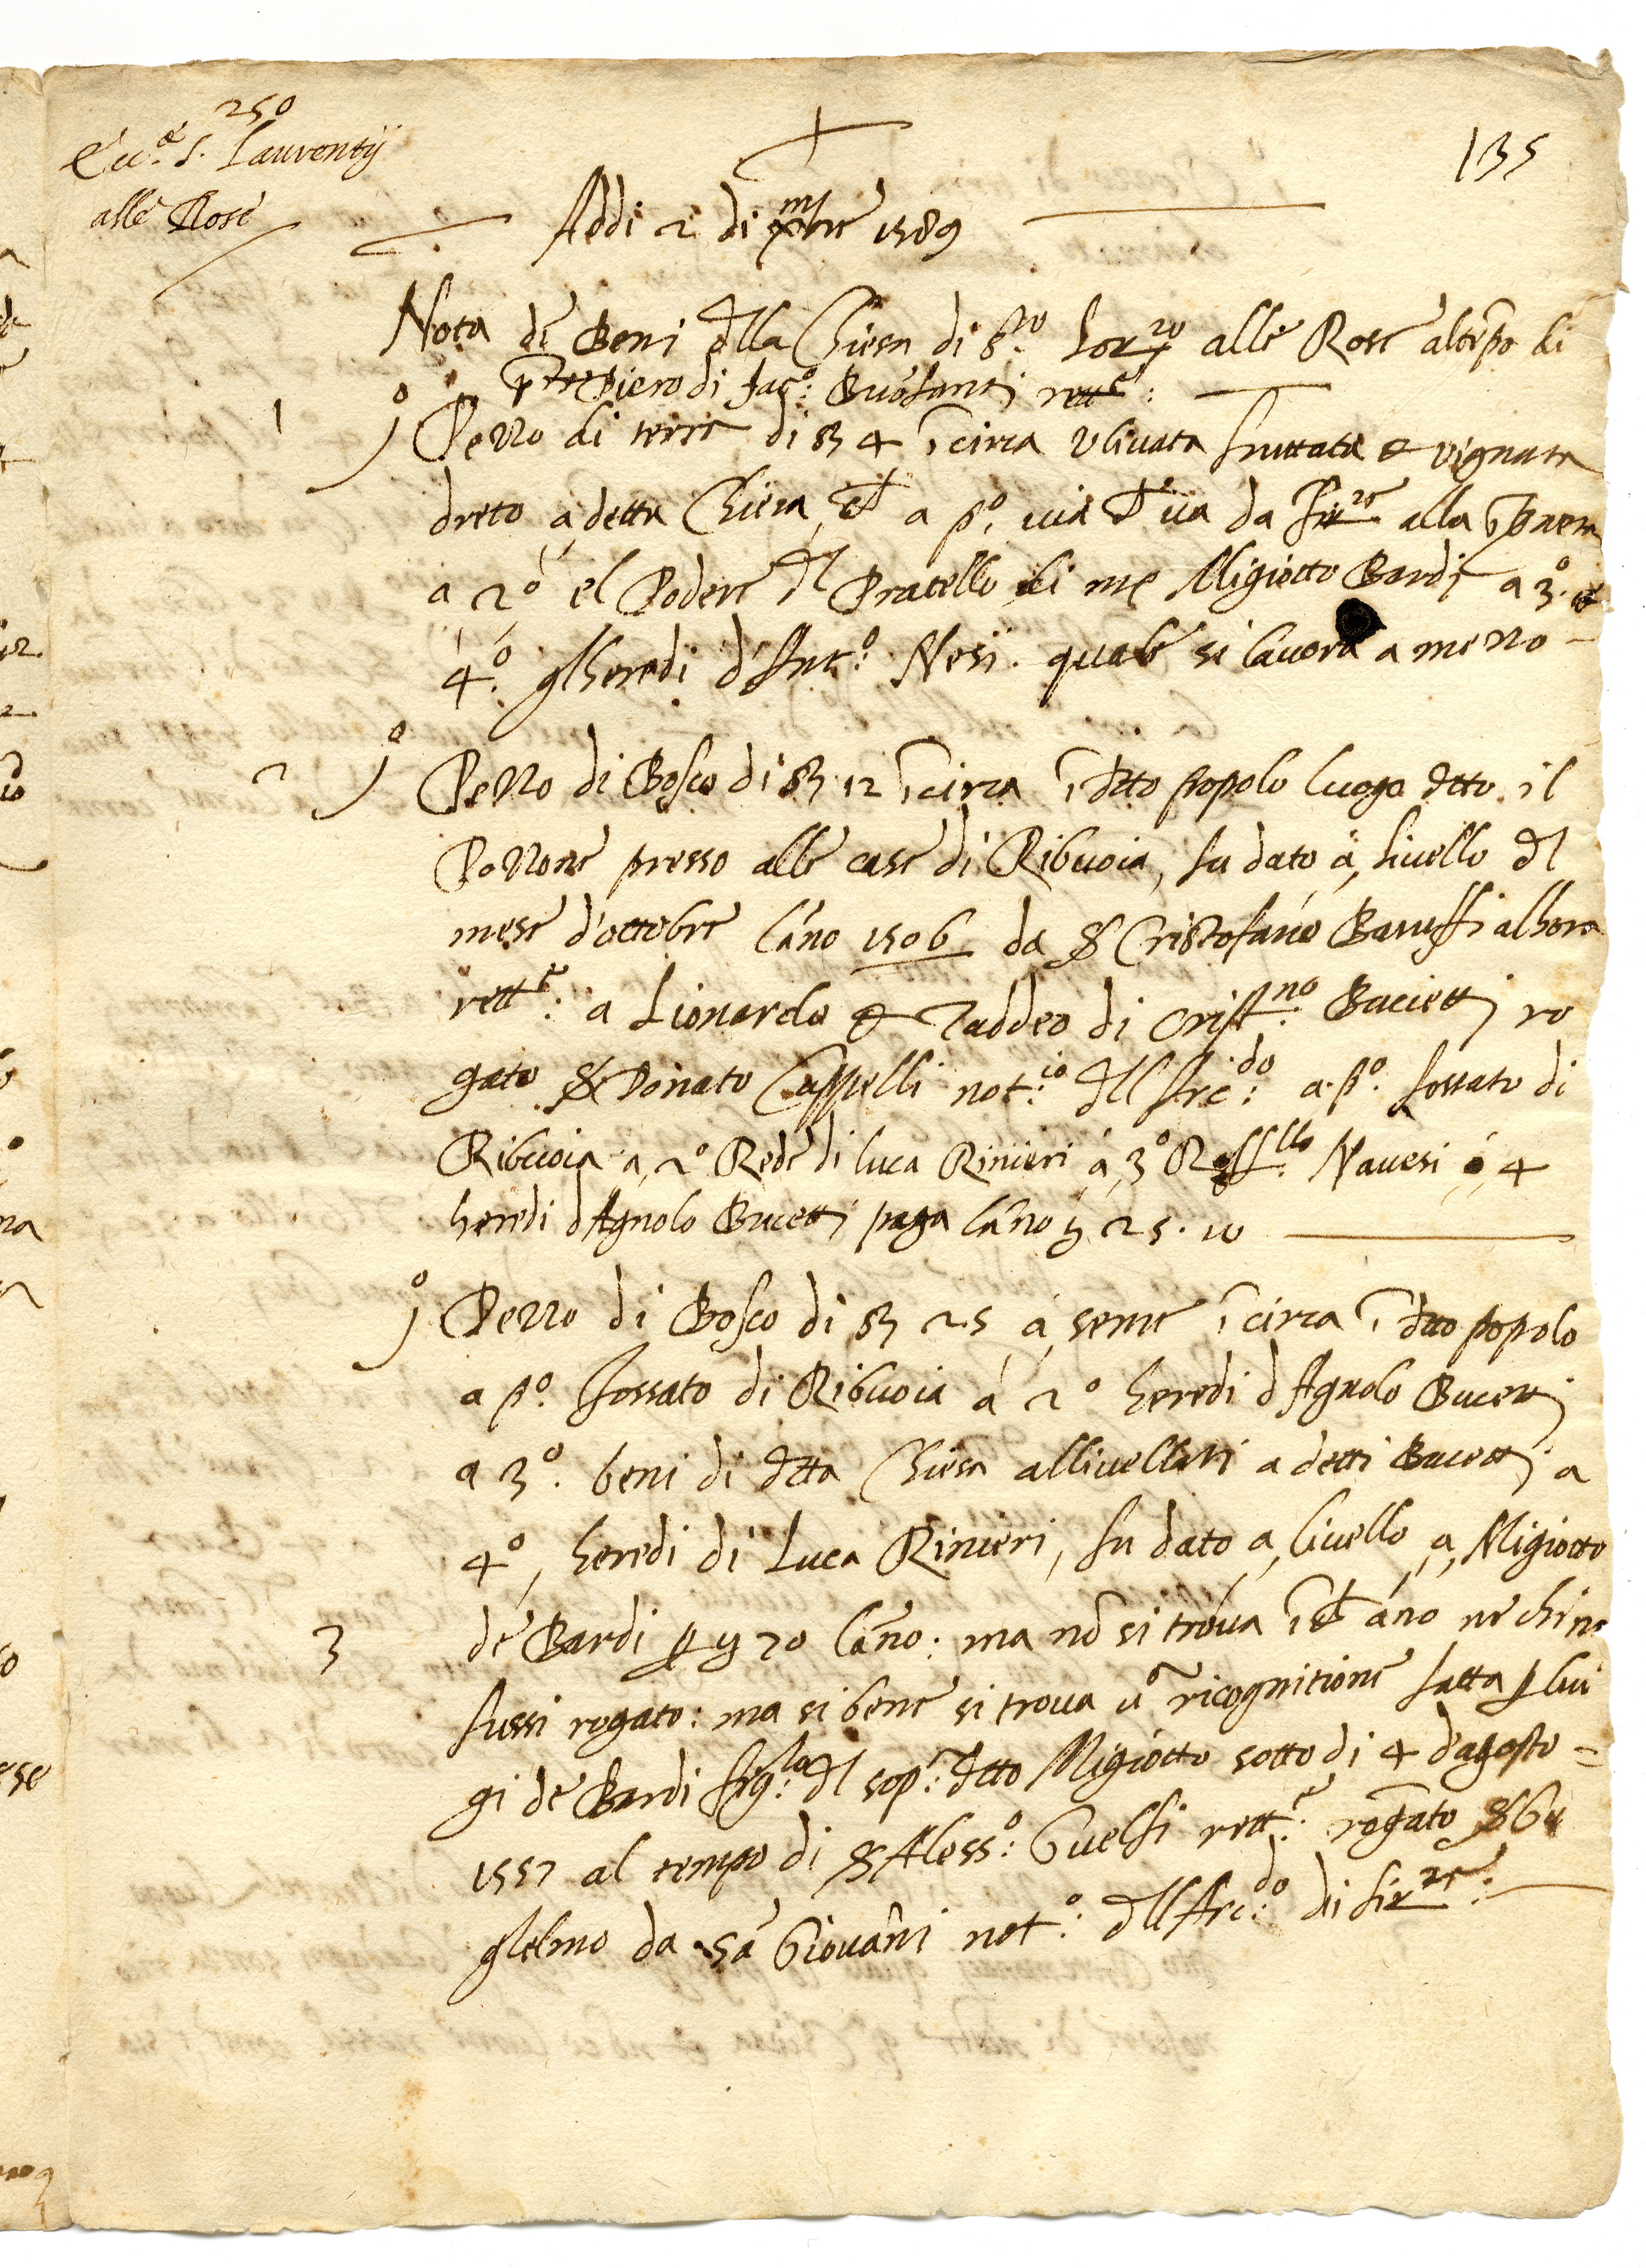 250
135
Ecc.ª S. Laurentij
alle Rose
Addi 2 di 1589
Nota de Beni dlla Chiesa di S.to Lor.zo alle Rose altēpo di
Piero di Jac.º: Buōfanti rett.e:
1 jº Pezzo di terre di 4 īcirca ulivata fruttata & vignata
dreto à detta Chiesa, a pº. via va da Fir.ze alla
a 2º el Podere dl Pratello di Migiotto Bardi a 3º. &
4º. glheredi d Nesi. quale si lavora a mezzo
2 jº Pezzo di Bosco di 12 īcirca ī dtto popolo luogo dtto il
Pozzone presso alle case di Ribuoia, fu dato à livello dl
mese d'ottobre lāno 1506 da Cristofano Baruffi alhora
rett.e: a Lionardo & Taddeo di Crist.no Bucietti ro
gato Donato Cappelli not.io dll Arc.do: a pº. fossato di
Ribuoia a 2º Rede di luca Rinieri à 3º Raff.llo Navesi à 4
heredi dAgnolo Bucetti paga lāno 25. 10
jº Pezzo di Bosco di 25 à seme īcirca ī dtto popolo
a pº. fossato di Ribuoia à 2º heredi dAgnolo Bucetti
a 3º. beni di dtta Chiesa allivellati a detti Bucetti a
4º, heredi di Luca Rinieri, fu dato a livello a Migiotto
3 de Bardi p 20 lāno: ma nō si trova āno ne chi ne
fussi rogato: ma si bene si trova ricognitione fatta p lui
gi de Bardi fig.lo dl sop.ª dtto Migiotto sotto di 4 dagosto =
1557 al tempo di Aless.º: Guelfi rett.e: rogato Gu
glelmo da Sā Giovāni not.º: dll Arc.do: di Fir.ze: